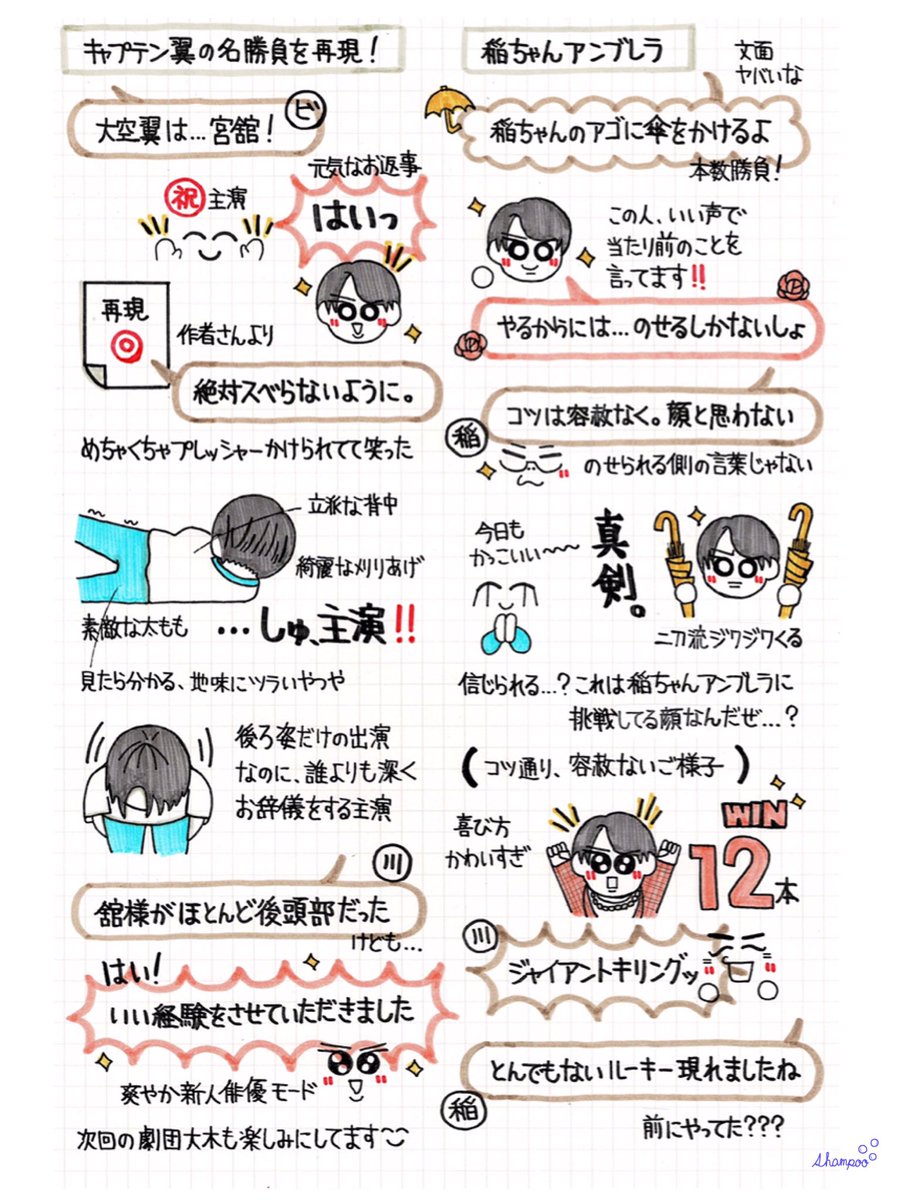 キャプテン翼の名勝負を再現！
大空翼は…宮舘！
ビ
元気なお返事
祝
主演
はいっ
再現
作者さんより
絶対スベらないように。
めちゃくちゃプレッシャーかけられてて笑った
立派な背中
綺麗な刈りあげ
素敵な太もも
…しゅ、主演!!
見たら分かる、地味にツラいやつや
後ろ姿だけの出演
なのに、誰よりも深く
お辞儀をする主演
川
舘様がほとんど後頭部だった
けども…
はい！
いい経験をさせていただきました
爽やか新人俳優モード
次回の劇団大木も楽しみにしてます
稲ちゃんアンブレラ
文面
ヤバいな
稲ちゃんのアゴに傘をかけるよ
本数勝負！
この人、いい声で
当たり前のことを
言ってます!!
やるからには…のせるしかないしょ
コツは容赦なく。顔と思わない
稲
のせられる側の言葉じゃない
今日も
かっこいい〜〜
真剣。
二刀流ジワジワくる
信じられる…？これは稲ちゃんアンブレラに
挑戦してる顔なんだぜ…？
（コツ通り、容赦ないご様子）
喜び方
かわいすぎ
WIN
12本
川
ジャイアントキリングッ
とんでもないルーキー現れましたね
稲
前にやってた???
Shampoo